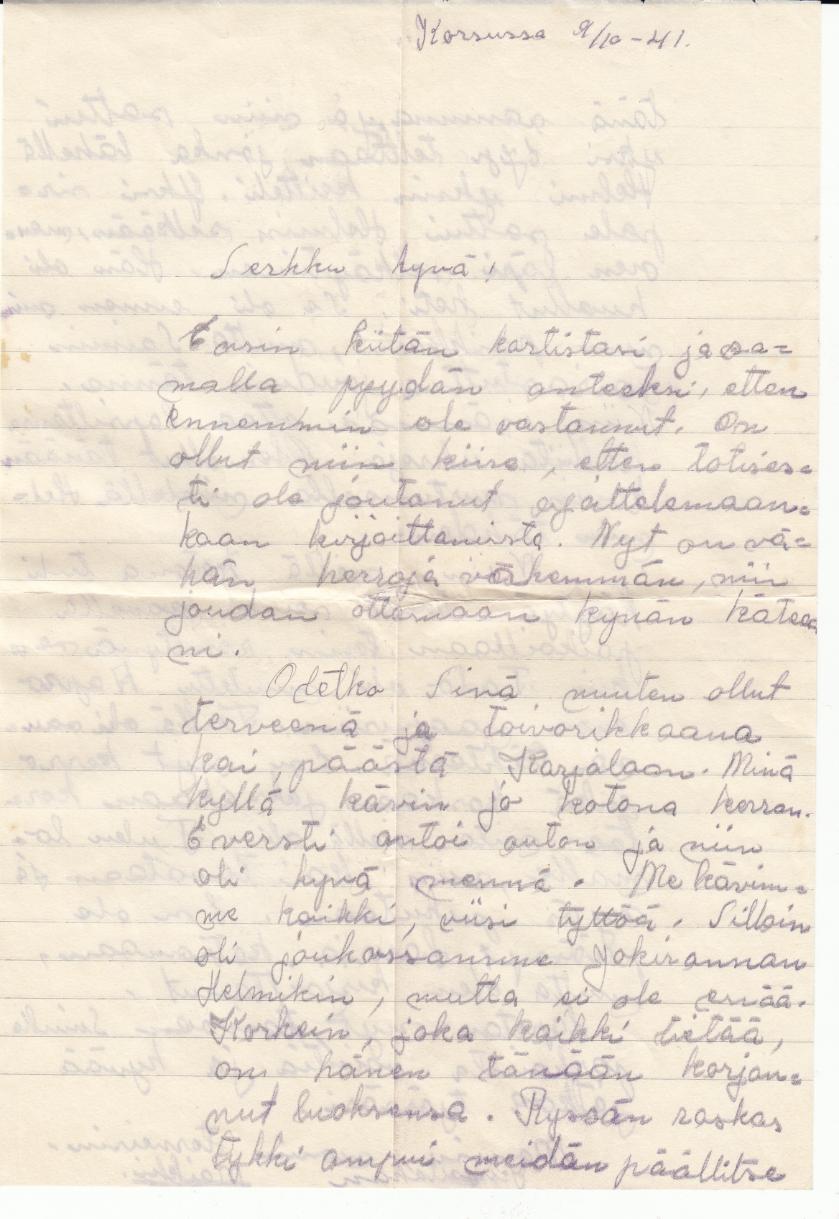 Korsussa 9/10-41.
Serkku hyvä!
Ensin kiitän kortistasi ja sa=
malla pyydän anteeksi, etten
ennemmin ole vastannut. On
ollut niin kiire, etten totises=
ti ole joutanut ajattelemaan=
kaan kirjoittamista. Nyt on vä=
hän herroja vähemmän, niin
joudan ottamaan kynän käteen
ni.
Oletko Sinä muuten ollut
terveenä ja toivorikkaana
kai, päästä Karjalaan. Minä
kyllä kävin jo kotona kerran.
Eversti antoi auton ja niin
oli hyvä mennä. Me kävim=
me kaikki, viisi tyttöä. Silloin
oli joukossamme Jokirannan
Helmikin, mutta ei ole enää.
Korkein, joka kaikki tietää,
on hänen tänään korjan=
nut luoksensa. Ryssän raskas
tykki ampui meidän päällitse